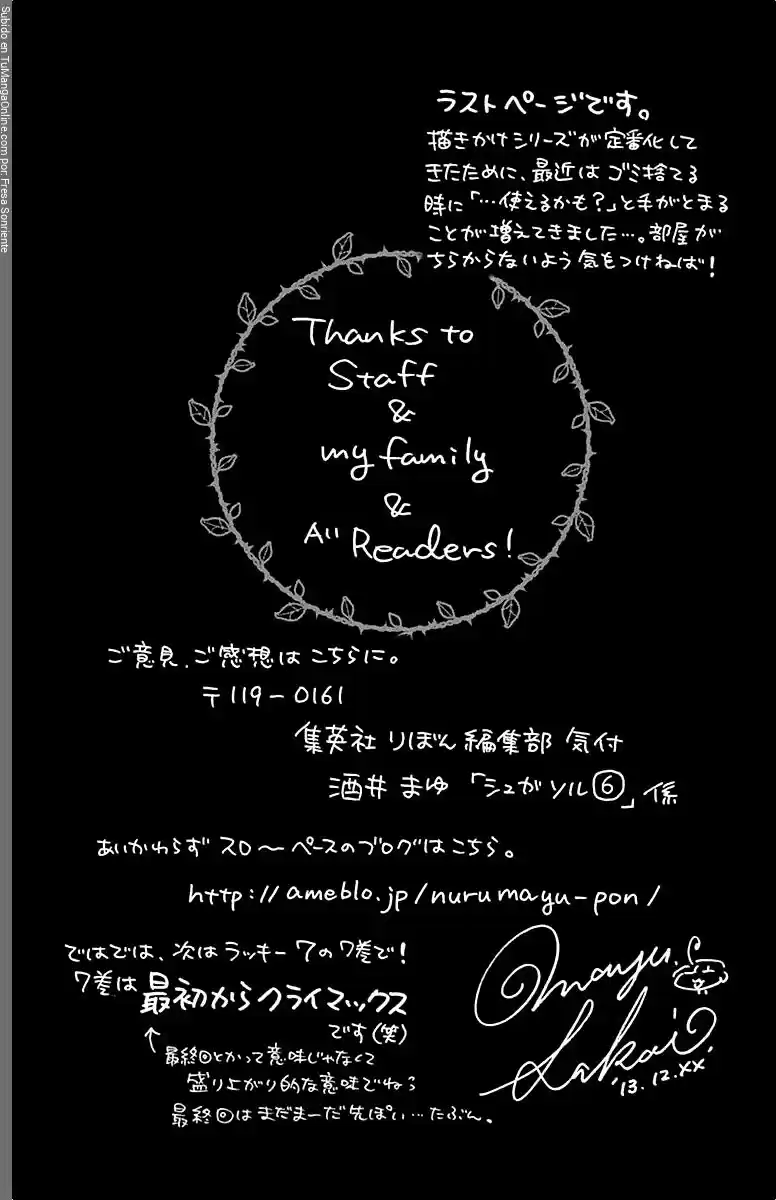 Subido en TuMangaOnline.com por: Fresa Sonriente
ラストページです。
描きかけシリーズが定番化して
きたために、最近は ゴミ捨てる
時に「…使えるかも?」と手がとまる
ことが増えてきました…。部屋が
ちらからないよう気をつけねば!
Thanks to
Staff
&
my family
&
All Readers!
ご意見、ご感想はこちらに。
〒119-0161
集英社 りぼん編集部 気付
酒井 まゆ 「シュガソル⑥」係
あいかわらず スロ〜ペースのブログはこちら。
http://ameblo.jp/nurumayu-pon/
ではでは、次はラッキー7の7巻で!
7巻は最初からクライマックス
です(笑)
↑最終回とかって意味じゃなくて
盛り上がり的な意味でね
最終回はまだまーだ先ぽい…たぶん。
Mayu
Sakai
'13.12.XX